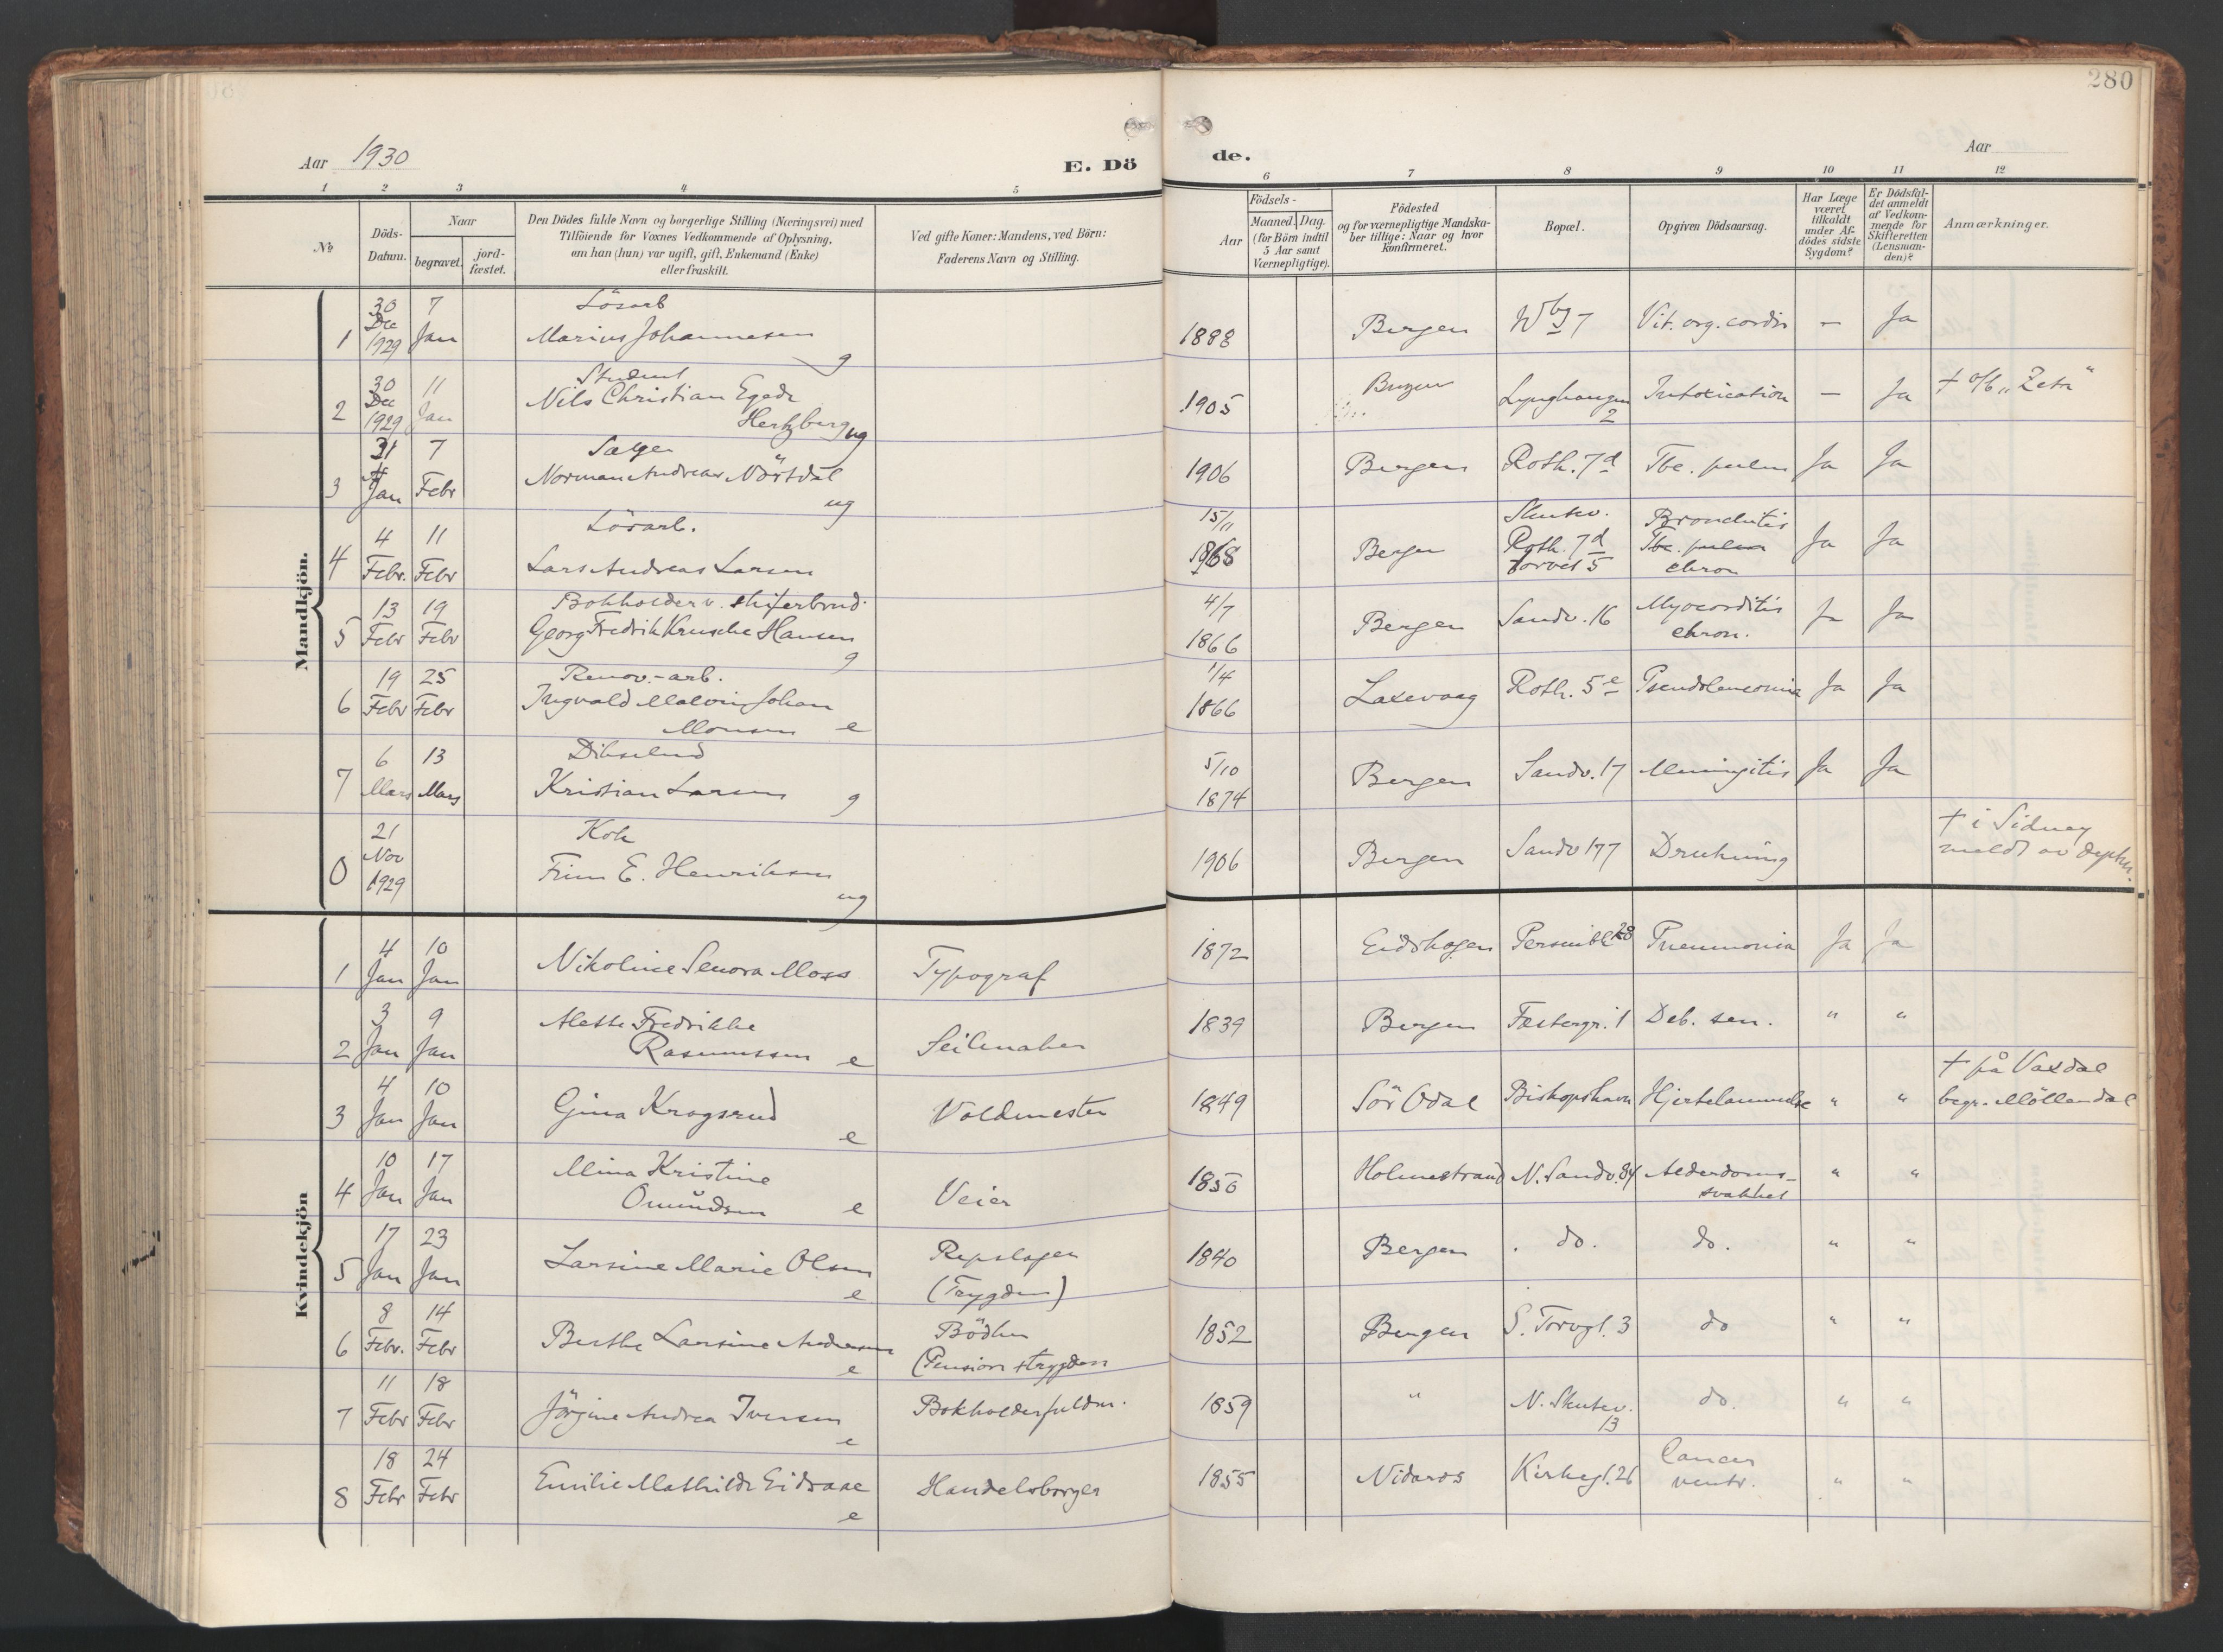 280
Aar 1930
E. Dö
de.
Aar
1 2 3 4 5 6 7 8 9 10 11 12
No
Döds-Datum.
Naar
begravet.
jord-fæstet.
Den Dödes fulde Navn og borgerlige Stilling (Næringsvei) med
Tilföiende for Voxnes Vedkommende af Oplysning,
om han (hun) var ugift, gift, Enkemand (Enke)
eller fraskilt.
Ved gifte Koner: Mandens, ved Börn:
Faderens Navn og Stilling.
Födsels-
Aar
Maaned. Dag.
(for Börn indtil
5 Aar samt
Værnepligtige).
Födested
og for værnepligtige Mandska-
ber tillige: Naar og hvor
konfirmeret.
Bopæl.
Opgiven Dödsaarsag.
Har Læge
været
tilkaldt
under Af-
dödes sidste
Sygdom?
Er Dödsfal-
det anmeldt
af Vedkom-
mende for
Skifteretten
(Lensman-
den)?
Anmærkninger.
Mandkjön.
1 30 Dec 1929 7 Jan Lösarb Marius Johannesen g 1888 Bergen 7 Vit. org. cordis — Ja
2 30 Dec 1929 11 Jan Student Nils Christian Egede Hertzberg ug 1905 Bergen Lynghaugen 2 Intoxication — Ja + o/b „Zeta"
3 31 Jan 7 Febr Sælger Norman Andreas Nörtdal ug 1906 Bergen Roth. 7d Tbc. pulm Ja Ja
4 4 Febr. 11 Febr Lösarb. Lars Andreas Larsen 15/11 1868 Bergen Skutev. Roth. 7d torvet 5 Bronchitis Tbc. pulm chron Ja Ja
5 13 Febr 19 Febr Bokholder v. skiferbrud. Georg Fredrik Krusche Hansen g 4/7 1866 Bergen Sandv. 16 Myocorditis chron. Ja Ja
6 19 Febr 25 Febr Renov.-arb. Ingvald Malvin Johan Monsen e 1/4 1866 Laxevaag Roth. 5e Pseudoleucomia Ja Ja
7 6 Mars 13 Mars Kristian Larsen g 5/10 1874 Bergen Sandv. 17 Meningitis Ja Ja
0 21 Nov 1929 Kok E. Henriksen ug 1906 Bergen Sandv 177 Drukning + i Sidney meldt av
Kvindekjön
1 4 Jan 10 Jan Nikoline Senora Moss Typograf 1872 Eidshagen 28 Pneumonia Ja Ja
2 3 Jan 9 Jan Alette Fredrikke Rasmussen e Seilmaker 1839 Bergen Fæstergr. 1 Deb. sen. " "
3 4 Jan 10 Jan Gina Krogsrud e Voldmester 1849 Sör Odal Biskopshavn Hjertelammelse " " + på Vaxdal begr. Möllendal
4 10 Jan 17 Jan Mina Kristine Omundsen e Veier 1850 Holmestrand N. Sandv. 84 Alderdoms-svakhet " "
5 17 Jan 23 Jan Larsine Marie Olsen e Repslager (Trygden) 1840 Bergen . do. do. " "
6 8 Febr. 14 Febr Berthe Larsine Andersen e Bödker (Pensionstrygden 1852 Bergen S. Torvgt. 3 do " "
7 11 Febr 18 Febr Jörgine Andrea Iversen e Bokholderfuldm. 1859 " N. Skutev. 13 do. " "
8 18 Febr 24 Febr Emilie Mathilde Eidsaae e Handelsborger 1855 Nidaros Kirkegt. 26 Cancer ventr. " "